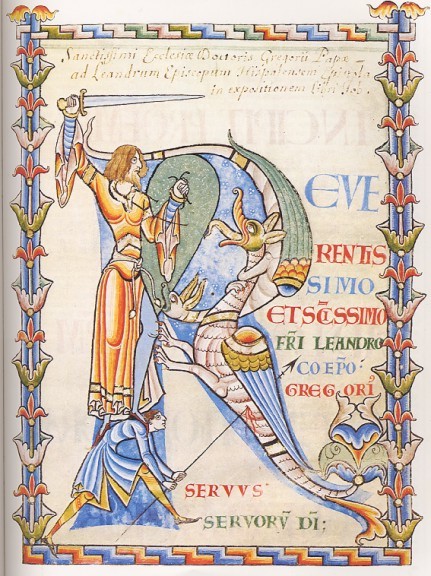 Sanctissimi Ecclesiæ Doctoris Gregorii Papæ
ad Leandrum Episcopum Hispalensem
in expositionem libri Iob.
REVE
RENTIS
SIMO
ET SC̄ISSIMO
FR̄I LEANDRO
COEP̄O:
GREGORI
SERVVS
SERVORV̄ DI: